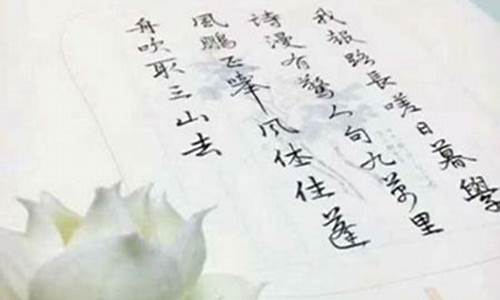 我報路長嗟日暮學
詩漫有驚人句九萬里
風鵬正舉風休住蓬
舟吹取三山去